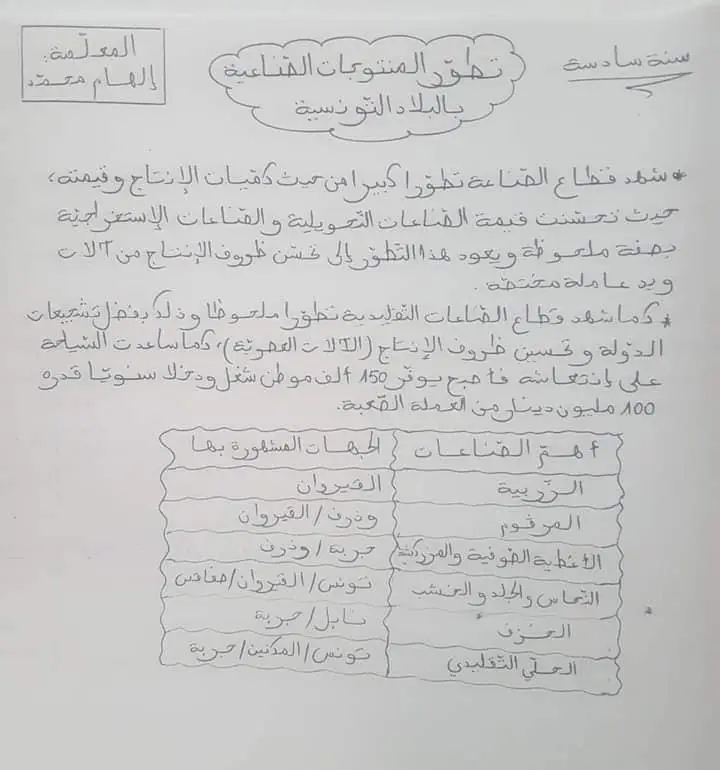 سنة سادسة
تطوّر المنتوجات الصّناعية
بالبلاد التّونسية
المعلّمة:
إلهام محمّد
* شهد قطاع الصّناعة تطوّرا كبيرا من حيث كمّيات الإنتاج وقيمته،
حيث تحسّنت قيمة الصّناعات التّحويلية والصّناعات الإستخراجيّة
بصفة ملحوظة ويعود هذا التّطوّر إلى تحسّن ظروف الإنتاج من آلات
ويد عاملة مختصّة.
* كما شهد قطاع الصّناعات التّقليدية تطوّرا ملحوظا وذلك بفضل تشجيعات
الدّولة وتحسين ظروف الإنتاج (الآلات العصريّة)، كما ساعدت السّياحة
على إنتعاشه فأصبح يوفّر 150 ألف موطن شغل ودخلا سنويّا قدره
100 مليون دينار من العملة الصّعبة.
أهمّ الصّناعات | الجهات المشهورة بها
الزّربية | القيروان
المرقوم | وذرف/القيروان
الأغطية الصّوفية والمزركشة | جربة/وذرف
النّحاس والجلد والخشب | تونس/القيروان/صفاقس
الخزف | نابل/جربة
الحلي التّقليدي | تونس/المكنين/جربة